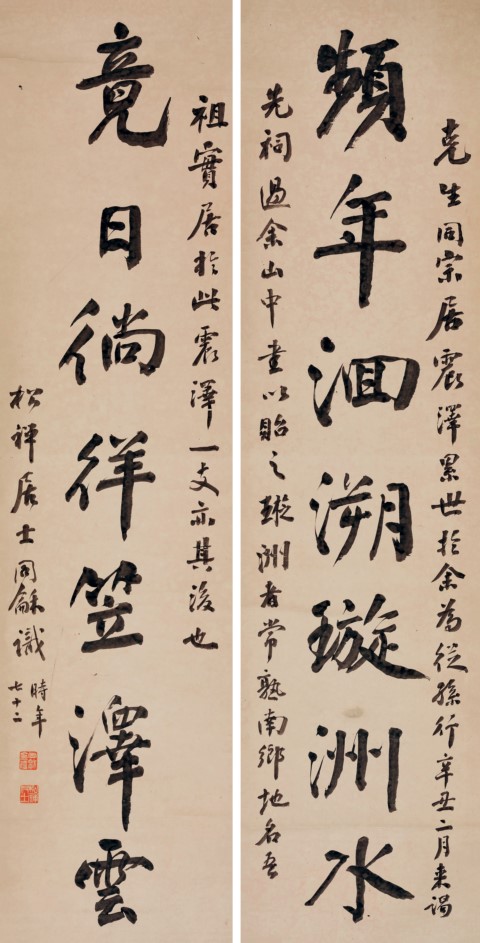 克生同宗居震澤累世於余為從孫行辛丑二月来謁
頻年洄溯璇洲水
先祠過余山中書以貽之璇洲者常熟南鄉地名吾
祖實居於此震澤一支亦其後也
竟日徜徉笠澤雲
松禪居士同龢識
時年
七十二